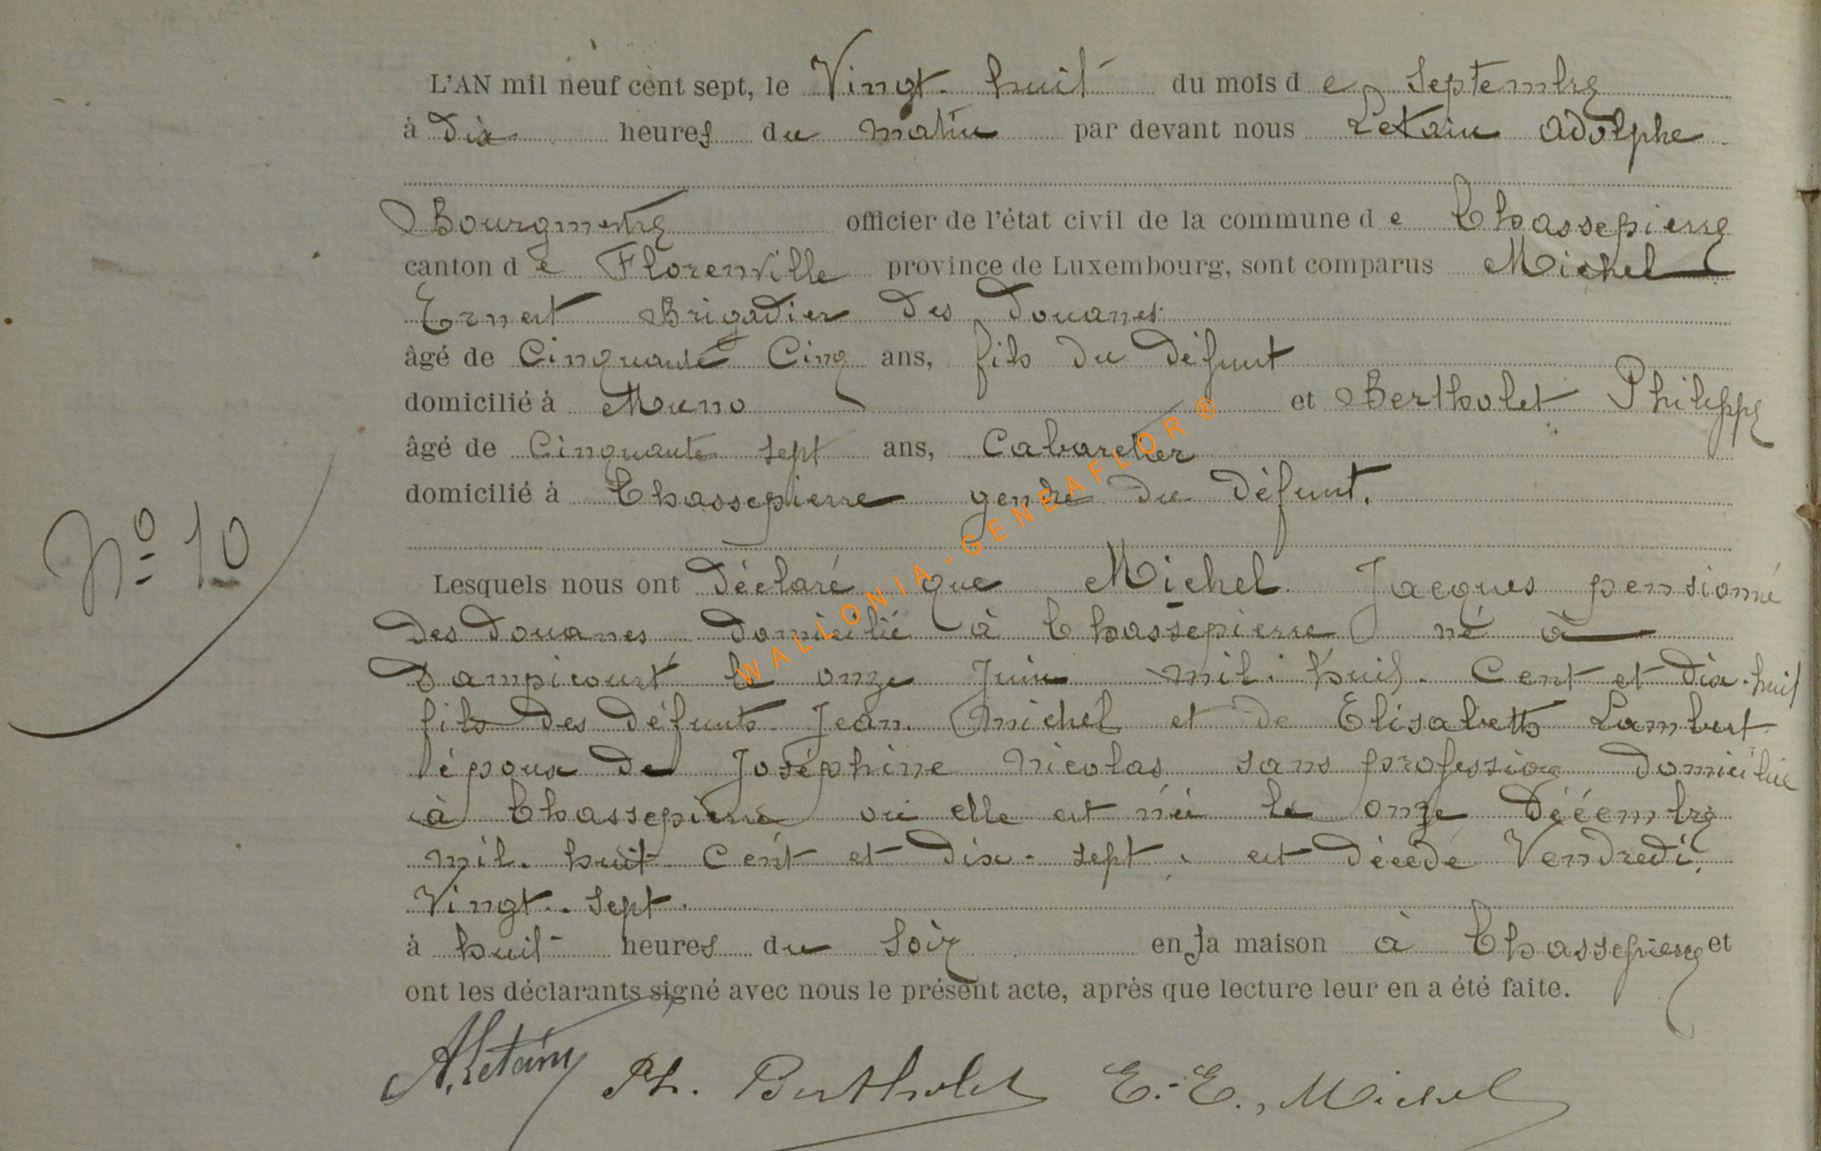 L'AN mil neuf cent sept, le Vingt-huit du mois de Septembre
à dix heures du matin par devant nous Lekain Adolphe
Bourgmestre officier de l'état civil de la commune de Chassepierre
canton de Florenville province de Luxembourg, sont comparus Michel
Ernest Brigadier des douanes
âgé de Cinquante Cinq ans, fils du défunt
domicilié à Muno et Bertholet Philippe
âgé de Cinquante sept ans, Cabaretier
domicilié à Chassepierre gendre du défunt.
Nº 10
Lesquels nous ont déclaré que Michel Jacques pensionné
des douanes domicilié à Chassepierre né à
Dampicourt le onze Juin mil-huit-Cent et dix-huit
fils des défunts Jean Michel et de Elisabeth Lambert
époux de Joséphine Nicolas sans profession domiciliée
à Chassepierre où elle est née le onze Décembre
mil-huit Cent et dix-sept. est décédé Vendredi,
Vingt-sept.
à huit heures du soir en sa maison à Chassepierre et
ont les déclarants signé avec nous le présent acte, après que lecture leur en a été faite.
Ph. Bertholet E.-E., Michel
WALLONIA-GENEAFLOR®